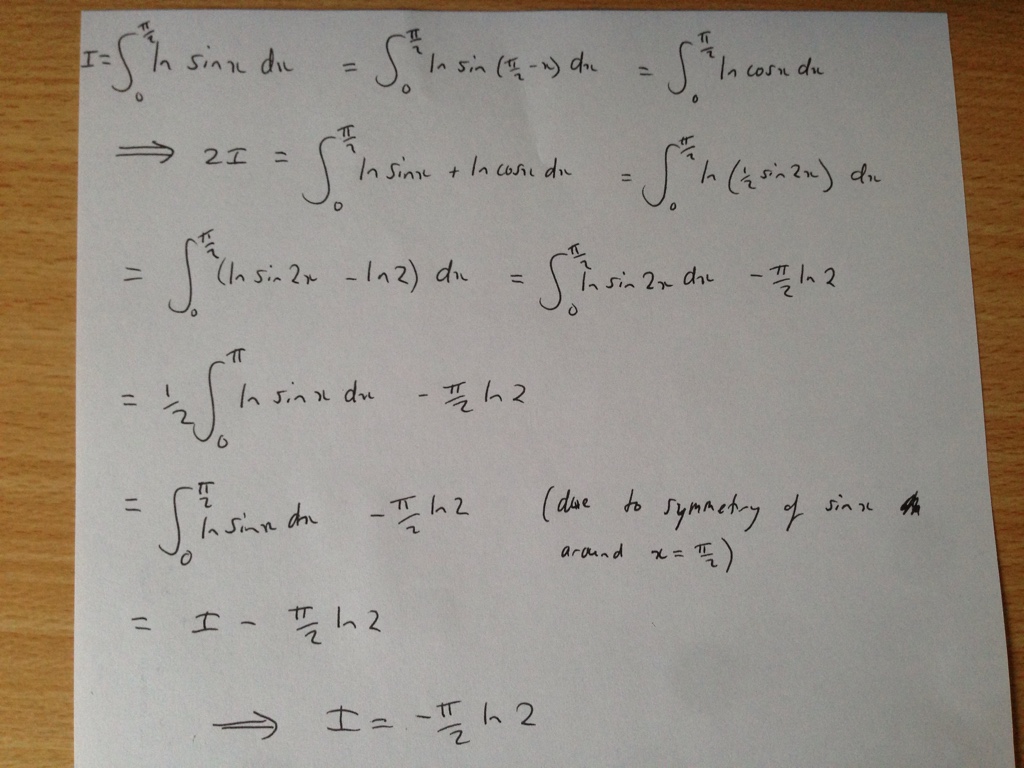 I = ∫₀^{π/2} ln sinx dx = ∫₀^{π/2} ln sin (π/2 - x) dx = ∫₀^{π/2} ln cosx dx
⟹ 2I = ∫₀^{π/2} ln sinx + ln cosx dx = ∫₀^{π/2} ln (1/2 sin 2x) dx
= ∫₀^{π/2} (ln sin 2x - ln 2) dx = ∫₀^{π/2} ln sin 2x dx - π/2 ln 2
= 1/2 ∫₀^{π} ln sinx dx - π/2 ln 2
= ∫₀^{π/2} ln sinx dx - π/2 ln 2 (due to symmetry of sinx
around x = π/2)
= I - π/2 ln 2
⟹ I = - π/2 ln 2